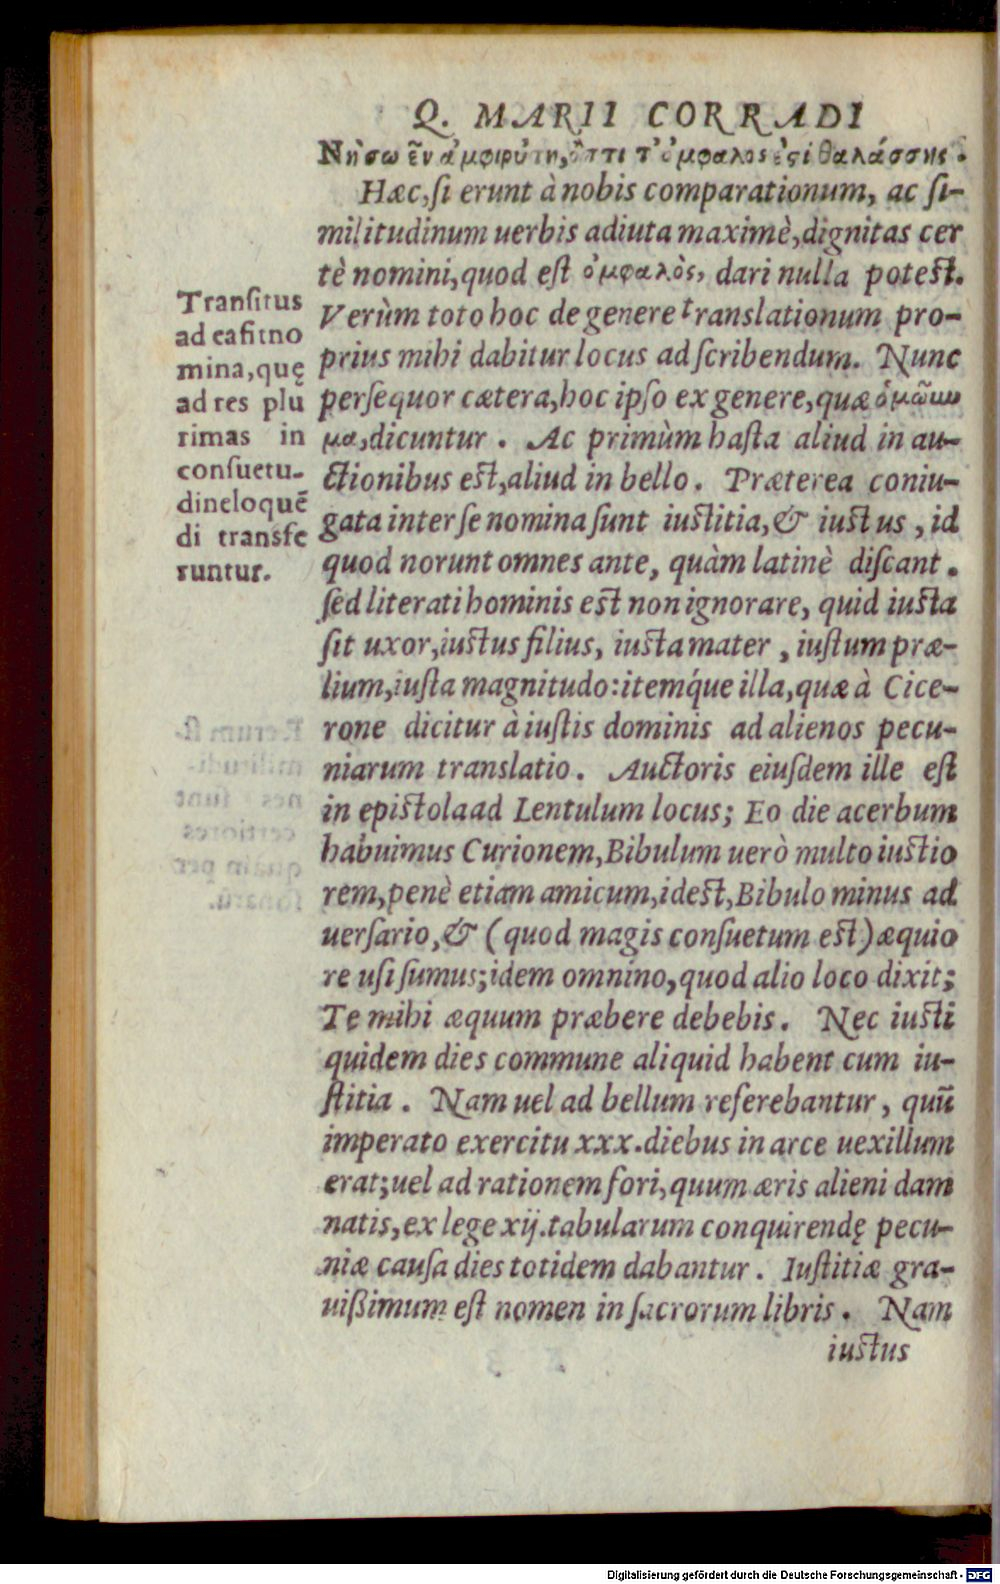 Q. MARII CORRADI
Νήσω ἐν ἀμφιρύτη, ὅττι τ' ὀμφαλος ἐςὶ θαλάσσης.
Hæc, ſi erunt à nobis comparationum, ac ſi-
militudinum uerbis adiuta maximè, dignitas cer
tè nomini, quod eſt ὀμφαλὸς, dari nulla poteſt.
Verùm toto hoc de genere translationum pro-
prius mihi dabitur locus ad ſcribendum. Nunc
perſequor cætera, hoc ipſo ex genere, quæ ὁμώνυ
μα, dicuntur. Ac primùm haſta aliud in au-
ctionibus eſt, aliud in bello. Præterea coniu-
gata inter ſe nomina ſunt iuſtitia, & iuſtus, id
quod norunt omnes ante, quàm latinè diſcant.
ſed literati hominis eſt non ignorare, quid iuſta
ſit uxor, iuſtus filius, iuſta mater, iuſtum præ-
lium, iuſta magnitudo: itemq́ue illa, quæ à Cice-
rone dicitur à iuſtis dominis ad alienos pecu-
niarum translatio. Auctoris eiuſdem ille eſt
in epiſtola ad Lentulum locus; Eo die acerbum
habuimus Curionem, Bibulum uerò multo iuſtio
rem, penè etiam amicum, ideſt, Bibulo minus ad
uerſario, & (quod magis conſuetum eſt) æquio
re uſi ſumus; idem omnino, quod alio loco dixit;
Te mihi æquum præbere debebis. Nec iuſti
quidem dies commune aliquid habent cum iu-
ſtitia. Nam uel ad bellum referebantur, quū
imperato exercitu xxx. diebus in arce uexillum
erat; uel ad rationem fori, quum æris alieni dam
natis, ex lege xij. tabularum conquirendę pecu-
niæ cauſa dies totidem dabantur. Iuſtitiæ gra-
uißimum eſt nomen in ſacrorum libris. Nam
iuſtus
Tranſitus
ad ea fit no
mina, quę
ad res plu
rimas in
conſuetu-
dine loquē
di transfe
runtur.
Digitalisierung gefördert durch die Deutsche Forschungsgemeinschaft - DFG